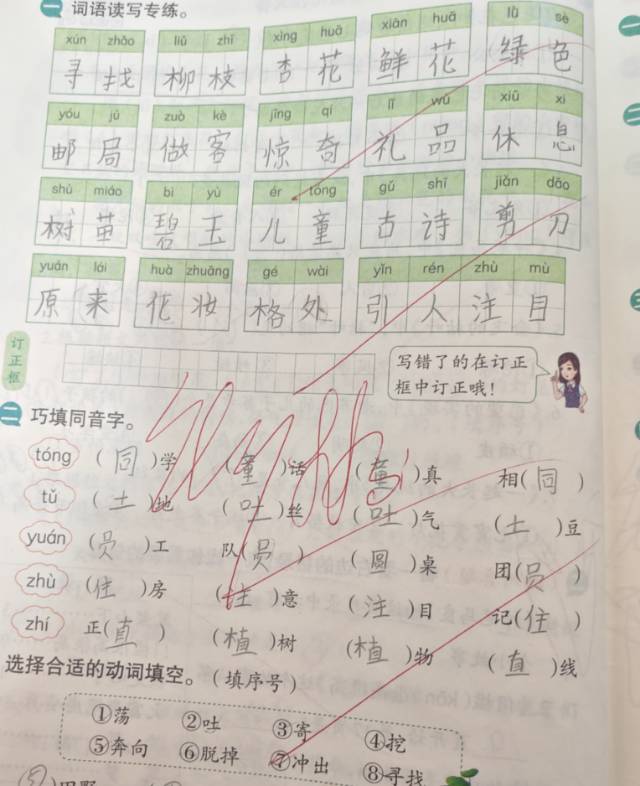 一 词语读写专练。
xún zhǎo liǔ zhī xìng huā xiān huā lǜ sè
寻找 柳枝 杏花 鲜花 绿色
yóu jú zuò kè jīng qí lǐ wù xiū xi
邮局 做客 惊奇 礼品 休息
shù miáo bì yù ér tóng gǔ shī jiǎn dāo
树苗 碧玉 儿童 古诗 剪刀
yuán lái huà zhuāng gé wài yǐn rén zhù mù
原来 化妆 格外 引人注目
订正框
写错了的在订正
框中订正哦!
二 巧填同音字。
tóng (同)学 (童)话 (童)真 相(同)
tǔ (土)地 (吐)丝 (吐)气 (土)豆
yuán (员)工 队(员) (圆)桌 团(员)
zhù (住)房 (注)意 (注)目 记(住)
zhí 正(直) (植)树 (植)物 (直)线
选择合适的动词填空。(填序号)
①荡 ②吐 ③寄 ④挖
⑤奔向 ⑥脱掉 ⑦冲出 ⑧寻找
(⑤)田野